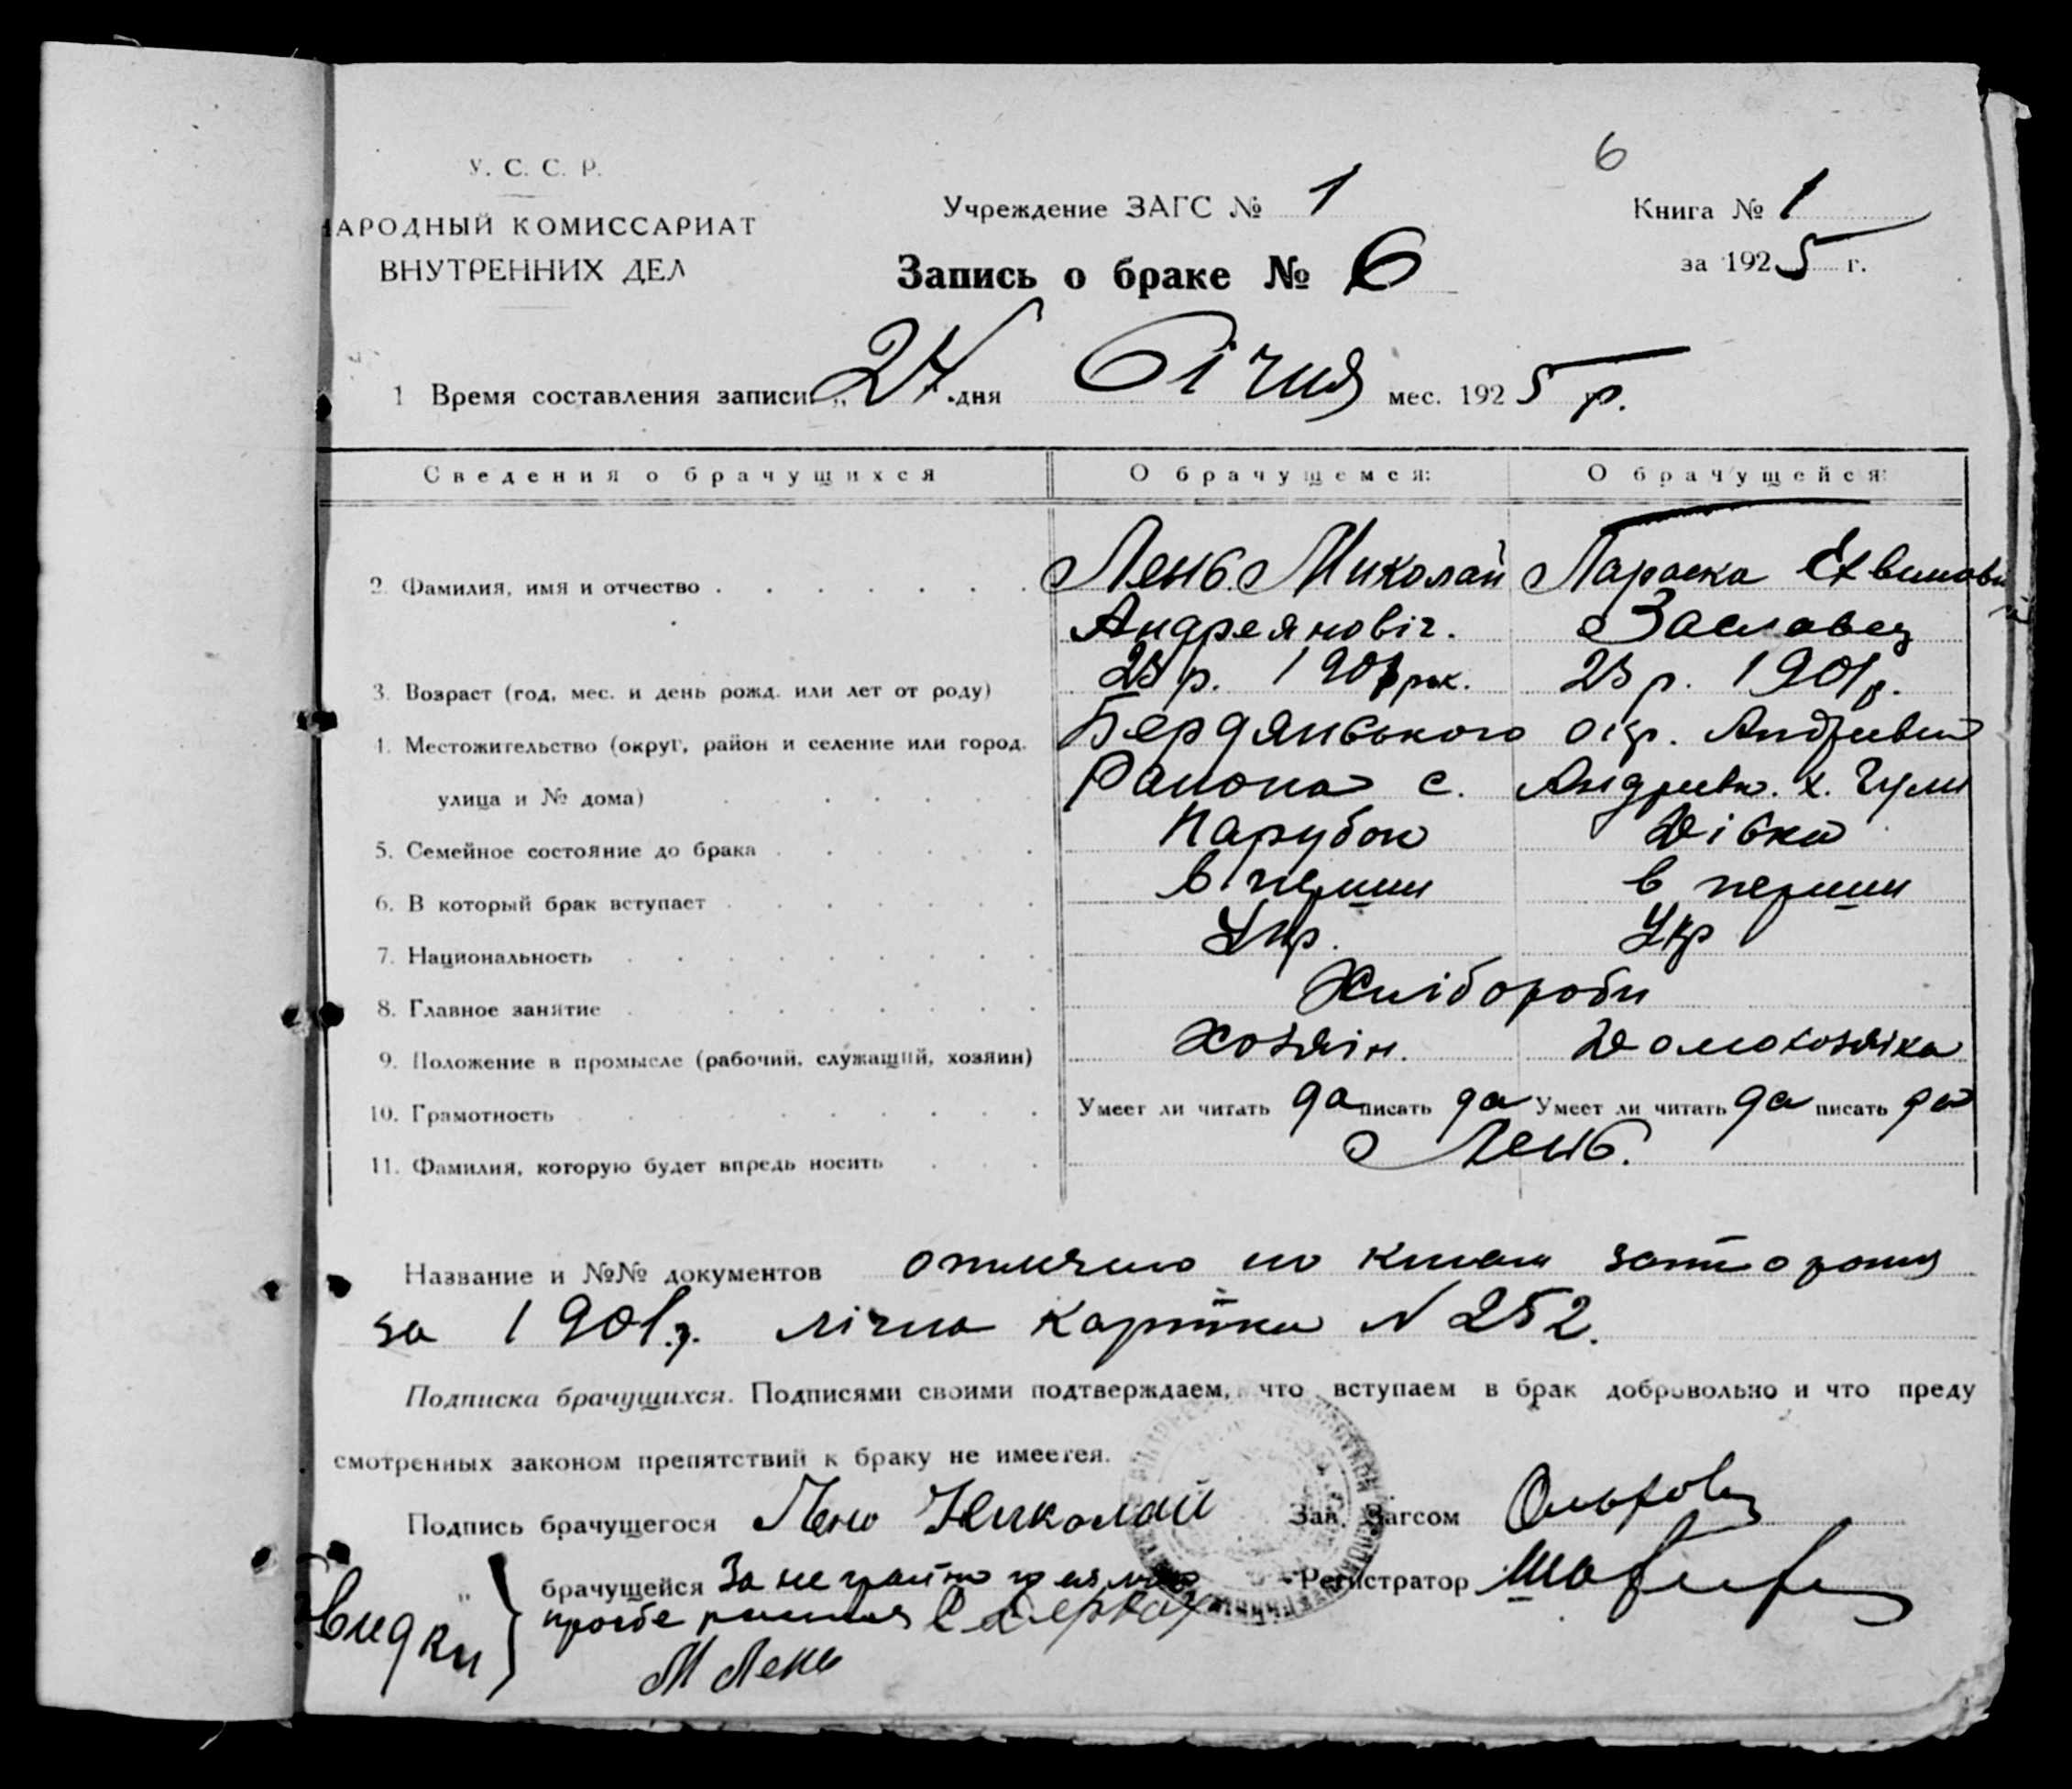 6
У. С. С. Р.
НАРОДНЫЙ КОМИССАРИАТ
ВНУТРЕННИХ ДЕЛ
Учреждение ЗАГС № 1
Книга № 1
за 1925 г.
Запись о браке № 6
1 Время составления записи: „ 27 дня Січня мес. 1925 р.
Сведения о брачущихся О брачущемся: О брачущейся:
2. Фамилия, имя и отчество Лень Миколай Параска
Андреяновіч. Заславец
3. Возраст (год, мес. и день рожд. или лет от роду) 23 р. 1901 рок. 23 р. 1901 р.
4. Местожительство (округ, район и селение или город, Бердянського окр.
улица и № дома) Района с.
5. Семейное состояние до брака Парубок Дівка
6. В который брак вступает в перший в перший
7. Национальность Укр. Укр
8. Главное занятие Хлібороби
9. Положение в промысле (рабочий, служащий, хозяин) Хозяін. Домохозяіка
10. Грамотность Умеет ли читать да писать да Умеет ли читать да писать да
11. Фамилия, которую будет впредь носить Лень.
Название и №№ документов отмічено по
за 1901 р. лічна картка N 252.
Подписка брачущихся. Подписями своими подтверждаем, что вступаем в брак добровольно и что преду
смотренных законом препятствий к браку не имеется.
Подпись брачущегося Лень Николай Зав. Загсом
„ брачущейся За Регистратор
прозбе
М Лень